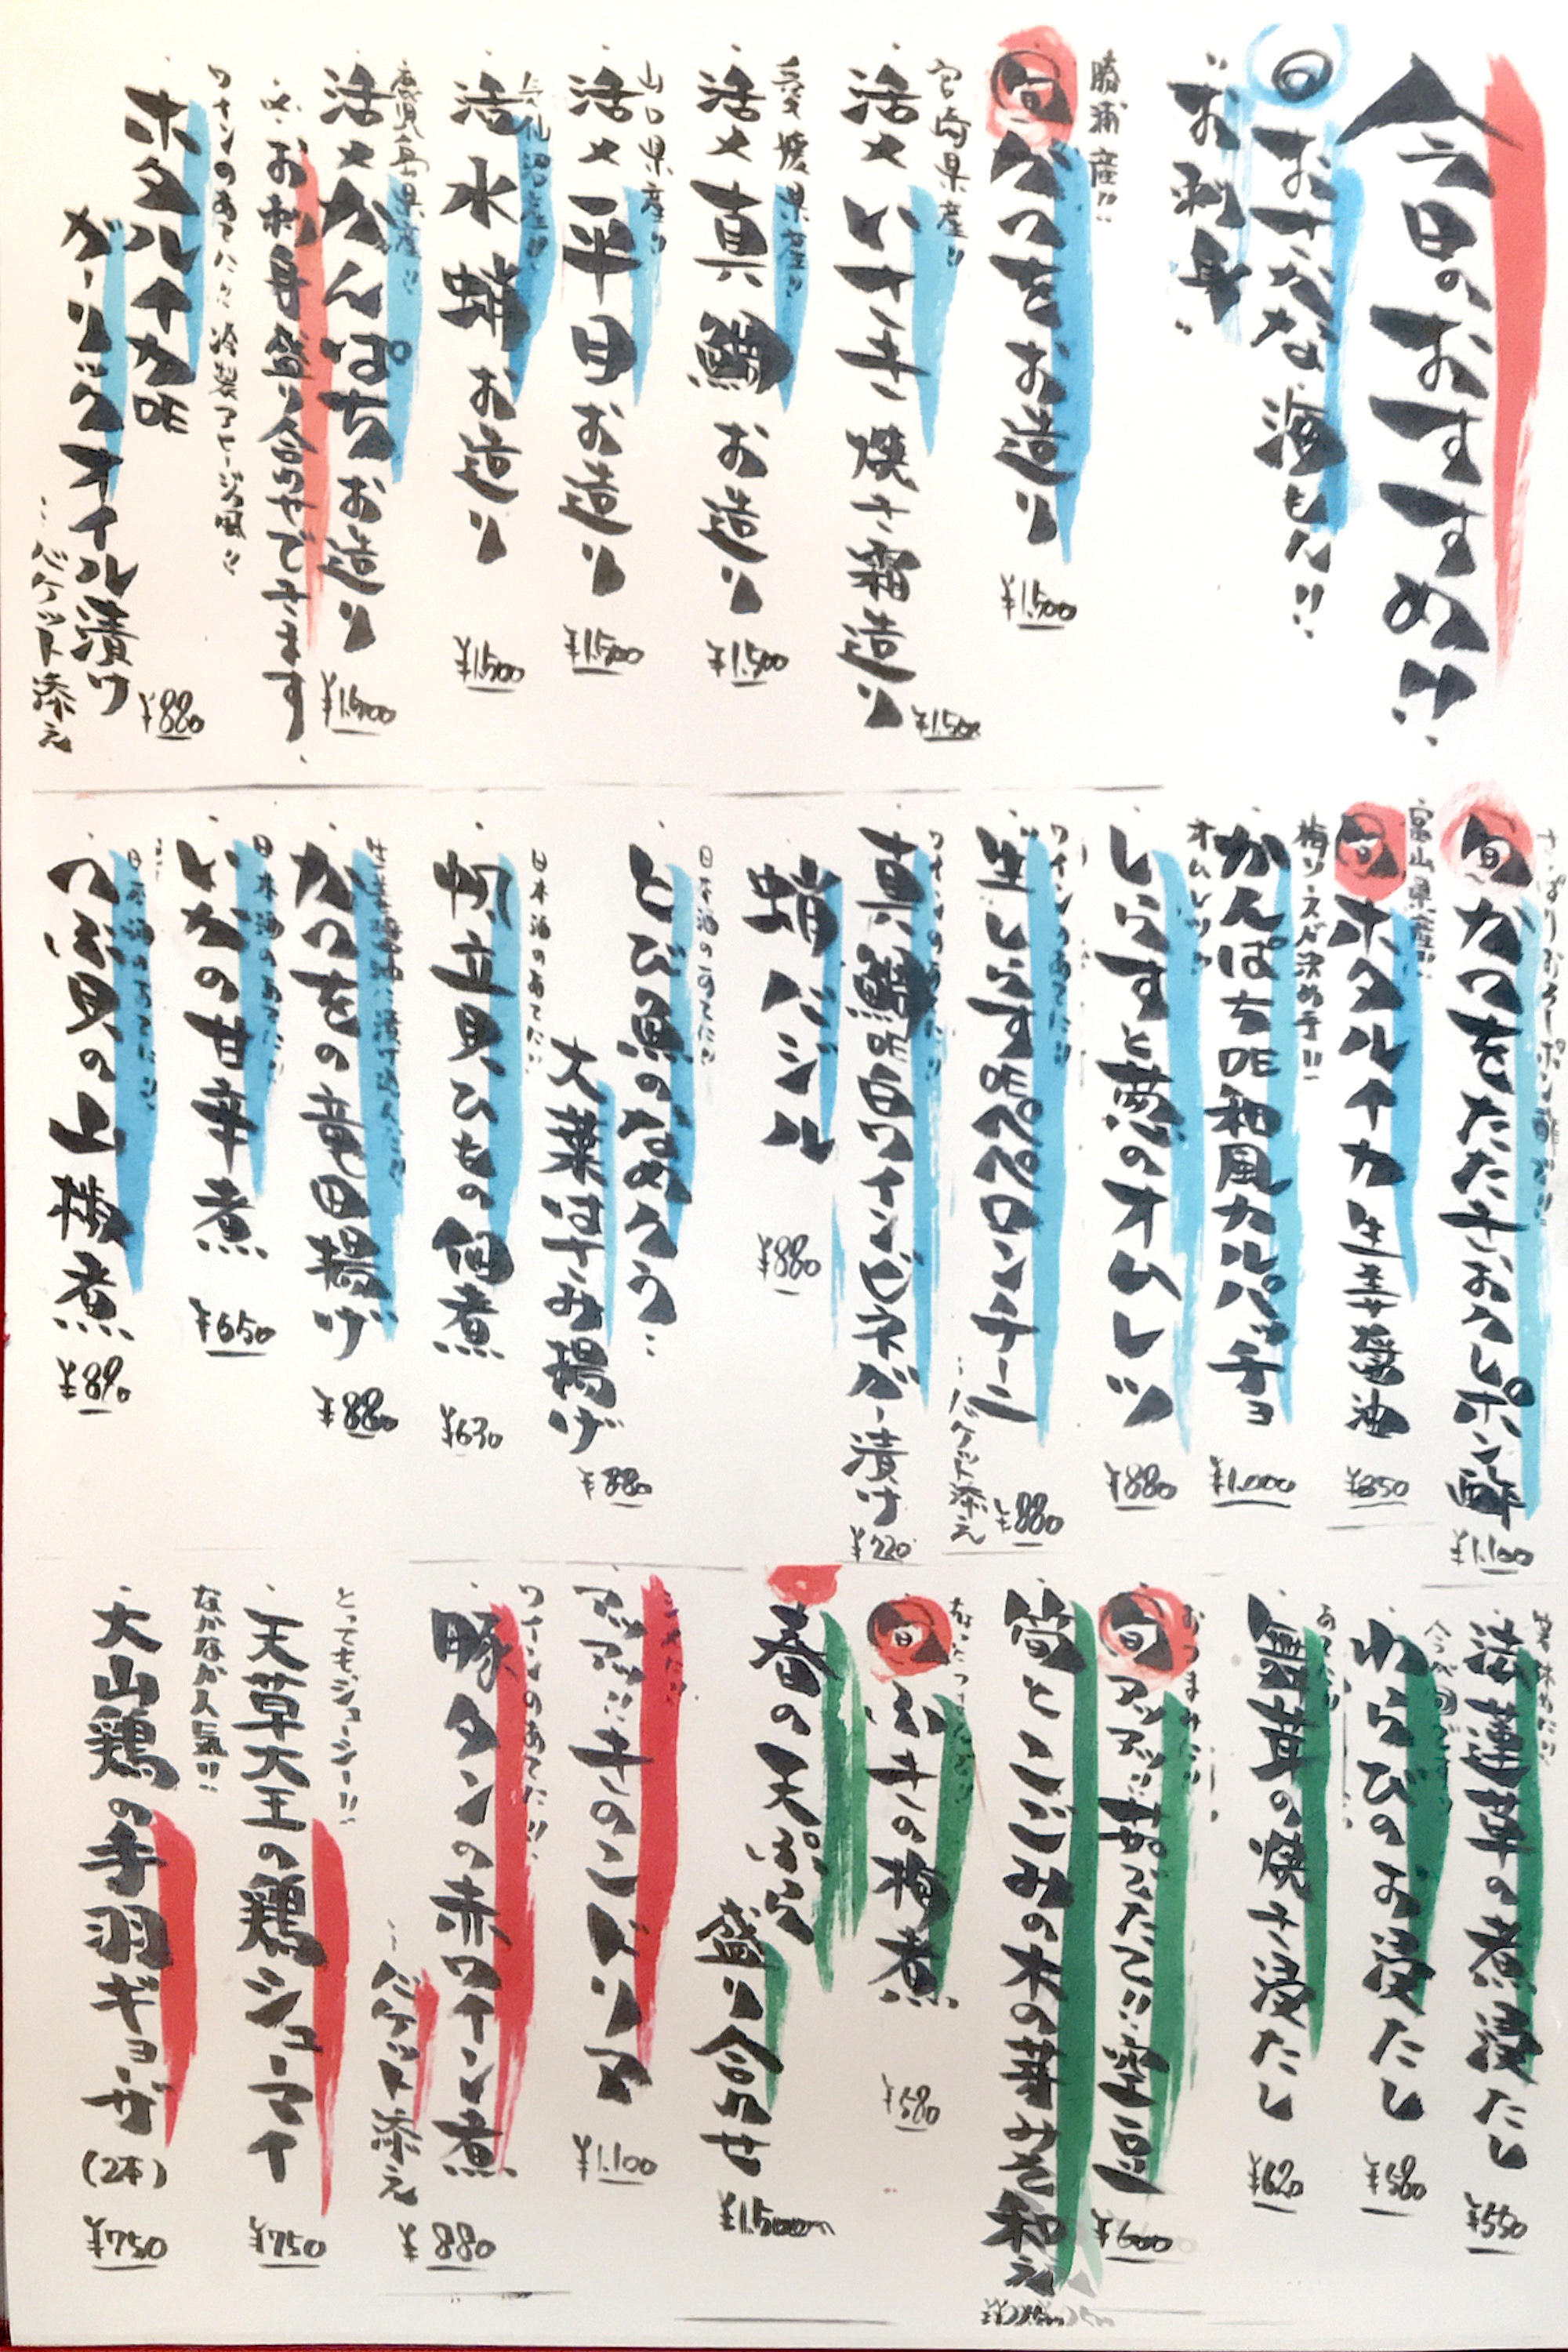 今日のおすすめ!!
おさかな海もん!!
お刺身
勝浦産!!
旬かつをお造り
¥1,500
宮崎県産!!
活〆いさき焼き霜造り
¥1,500
愛媛県産!!
活〆真鯛お造り
¥1,500
山口県産!!
活〆平目お造り
¥1,500
活水蛸お造り
¥1,500
鹿児島県産!!
活〆かんぱちお造り
¥1,500
お刺身盛り合わせできます
ワインのあてに!!
ホタルイカDE
ガーリックオイル漬け
…バケット添え
¥880
さっぱりおろしポン酢で!!
旬かつをたたきおろしポン酢
¥1,100
富山県産!!
旬ホタルイカ生姜醤油
¥850
梅ソースが決め手!!
かんぱちDE和風カルパッチョ
¥1,000
オムレツ
しらすと葱のオムレツ
¥880
ワインのあてに!!
生しらすDEペペロンチーノ
…バケット添え
¥880
ワインのあてに!!
真鯛DE白ワインビネガー漬け
¥720
蛸バジル
¥880
日本酒のあてに!!
とび魚のなめろう…
大葉はさみ揚げ
¥880
日本酒のあてに!!
帆立貝ひもの佃煮
¥630
かつをの竜田揚げ
¥880
日本酒のあてに!!
いかの甘辛煮
¥650
日本酒のあてに!!
つぶ貝の山椒煮
¥890
箸休めに!!
法蓮草の煮浸たし
¥550
今が旬!!
わらびのお浸たし
¥580
あてに!!
舞茸の焼き浸たし
¥620
おつまみに!!
旬アツアツ!!茹でたて!!空豆
¥600
筍とこごみの木の芽みそ和え
旬ふきの梅煮
¥580
春の天ぷら
盛り合わせ
¥1,500
アツアツ!!きのこドリア
¥1,100
ワインのあてに!!
豚タンの赤ワイン煮
…バケット添え
¥880
とってもジューシー!!
天草大王の鶏シューマイ
¥750
なかなか人気!!
大山鶏の手羽ギョーザ
(2本)
¥750